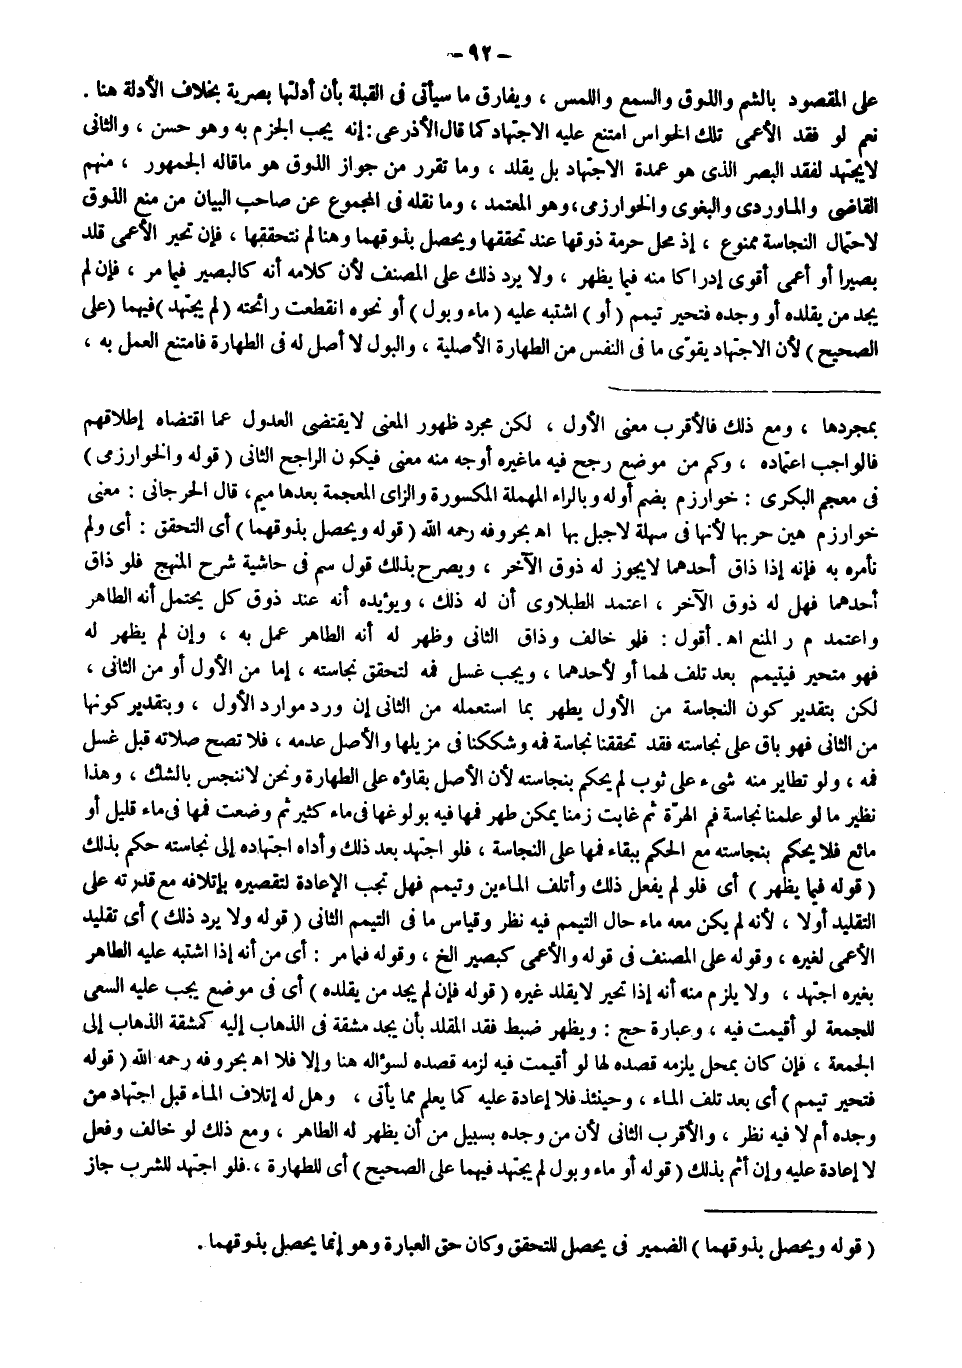 - ٩٢ -
على المقصود بالشم والذوق والسمع واللمس ، ويفارق ما سيأتى فى القبلة بأن أدلتها بصرية بخلاف الأدلة هنا .
نعم لو فقد الأعمى تلك الحواس امتنع عليه الاجتهاد كما قال الأذرعى : إنه يجب الجزم به وهو حسن ، والثانى
لايجتهد لفقد البصر الذى هو عمدة الاجتهاد بل يقلد ، وما تقرر من جواز الذوق هو ماقاله الجمهور ، منهم
القاضى والماوردى والبغوى والخوارزمى، وهو المعتمد ، وما نقله فى المجموع عن صاحب البيان من منع الذوق
لاحتمال النجاسة ممنوع ، إذ محل حرمة ذوقها عند تحققها ويحصل بذوقهما وهنا لم نتحققها ، فإن تحير الأعمى قلد
بصيرا أو أعمى أقوى إدراكا منه فيما يظهر ، ولا يرد ذلك على المصنف لأن كلامه أنه كالبصير فيما مر ، فإن لم
يجد من يقلده أو وجده فتحير تيمم ( أو ) اشتبه عليه ( ماء وبول ) أو نحوه انقطعت رائحته ( لم يجتهد ) فيهما ( على
الصحيح ) لأن الاجتهاد يقوّى ما فى النفس من الطهارة الأصلية ، والبول لا أصل له فى الطهارة فامتنع العمل به ،
بمجردها ، ومع ذلك فالأقرب معنى الأول ، لكن مجرد ظهور المعنى لايقتضى العدول عما اقتضاه إطلاقهم
فالواجب اعتماده ، وكم من موضع رجح فيه ماغيره أوجه منه معنى فيكون الراجح الثانى ( قوله والخوارزمى )
فى معجم البكرى : خوارزم بضم أوله وبالراء المهملة المكسورة والزاى المعجمة بعدها ميم، قال الجرجانى : معنى
خوارزم هين حربها لأنها فى سهلة لاجبل بها اه بحروفه رحمه الله ( قوله ويحصل بذوقهما ) أى التحقق : أى ولم
نأمره به فإنه إذا ذاق أحدهما لايجوز له ذوق الآخر ، ويصرح بذلك قول سم فى حاشية شرح المنهج فلو ذاق
أحدهما فهل له ذوق الآخر ، اعتمد الطبلاوى أن له ذلك ، ويؤيده أنه عند ذوق كل يحتمل أنه الطاهر
واعتمد م ر المنع اه . أقول : فلو خالف وذاق الثانى وظهر له أنه الطاهر عمل به ، وإن لم يظهر له
فهو متحير فيتيمم بعد تلف لهما أو لأحدهما ، ويجب غسل فمه لتحقق نجاسته ، إما من الأول أو من الثانى ،
لكن بتقدير كون النجاسة من الأول يطهر بما استعمله من الثانى إن ورد موارد الأول ، وبتقدير كونها
من الثانى فهو باق على نجاسته فقد تحققنا نجاسة فمه وشككنا فى مزيلها والأصل عدمه ، فلا تصح صلاته قبل غسل
فمه ، ولو تطاير منه شىء على ثوب لم يحكم بنجاسته لأن الأصل بقاؤه على الطهارة ونحن لاننجس بالشك ، وهذا
نظير ما لو علمنا نجاسة فم الهرّة ثم غابت زمنا يمكن طهر فمها فيه بولوغها فى ماء كثير ثم وضعت فمها فى ماء قليل أو
مائع فلا يحكم بنجاسته مع الحكم ببقاء فمها على النجاسة ، فلو اجتهد بعد ذلك وأداه اجتهاده إلى نجاسته حكم بذلك
( قوله فيما يظهر ) أى فلو لم يفعل ذلك وأتلف الماءين وتيمم فهل تجب الإعادة لتقصيره بإتلافه مع قدرته على
التقليد أولا ، لأنه لم يكن معه ماء حال التيمم فيه نظر وقياس ما فى التيمم الثانى ( قوله ولا يرد ذلك ) أى تقليد
الأعمى لغيره ، وقوله على المصنف فى قوله والأعمى كبصير الخ ، وقوله فيما مر : أى من أنه إذا اشتبه عليه الطاهر
بغيره اجتهد ، ولا يلزم منه أنه إذا تحير لايقلد غيره ( قوله فإن لم يجد من يقلده ) أى فى موضع يجب عليه السعى
للجمعة لو أقيمت فيه ، وعبارة حج : ويظهر ضبط فقد المقلد بأن يجد مشقة فى الذهاب إليه كمشقة الذهاب إلى
الجمعة ، فإن كان بمحل يلزمه قصده لها لو أقيمت فيه لزمه قصده لسؤاله هنا وإلا فلا اه بحروفه رحمه الله ( قوله
فتحير تيمم ) أى بعد تلف الماء ، وحينئذ فلا إعادة عليه كما يعلم مما يأتى ، وهل له إتلاف الماء قبل اجتهاد من
وجده أم لا فيه نظر ، والأقرب الثانى لأن من وجده بسبيل من أن يظهر له الطاهر ، ومع ذلك لو خالف وفعل
لا إعادة عليه وإن أثم بذلك ( قوله أو ماء وبول لم يجتهد فيهما على الصحيح ) أى للطهارة ، فلو اجتهد للشرب جاز
( قوله ويحصل بذوقهما ) الضمير فى يحصل للتحقق وكان حق العبارة وهو إنما يحصل بذوقهما .